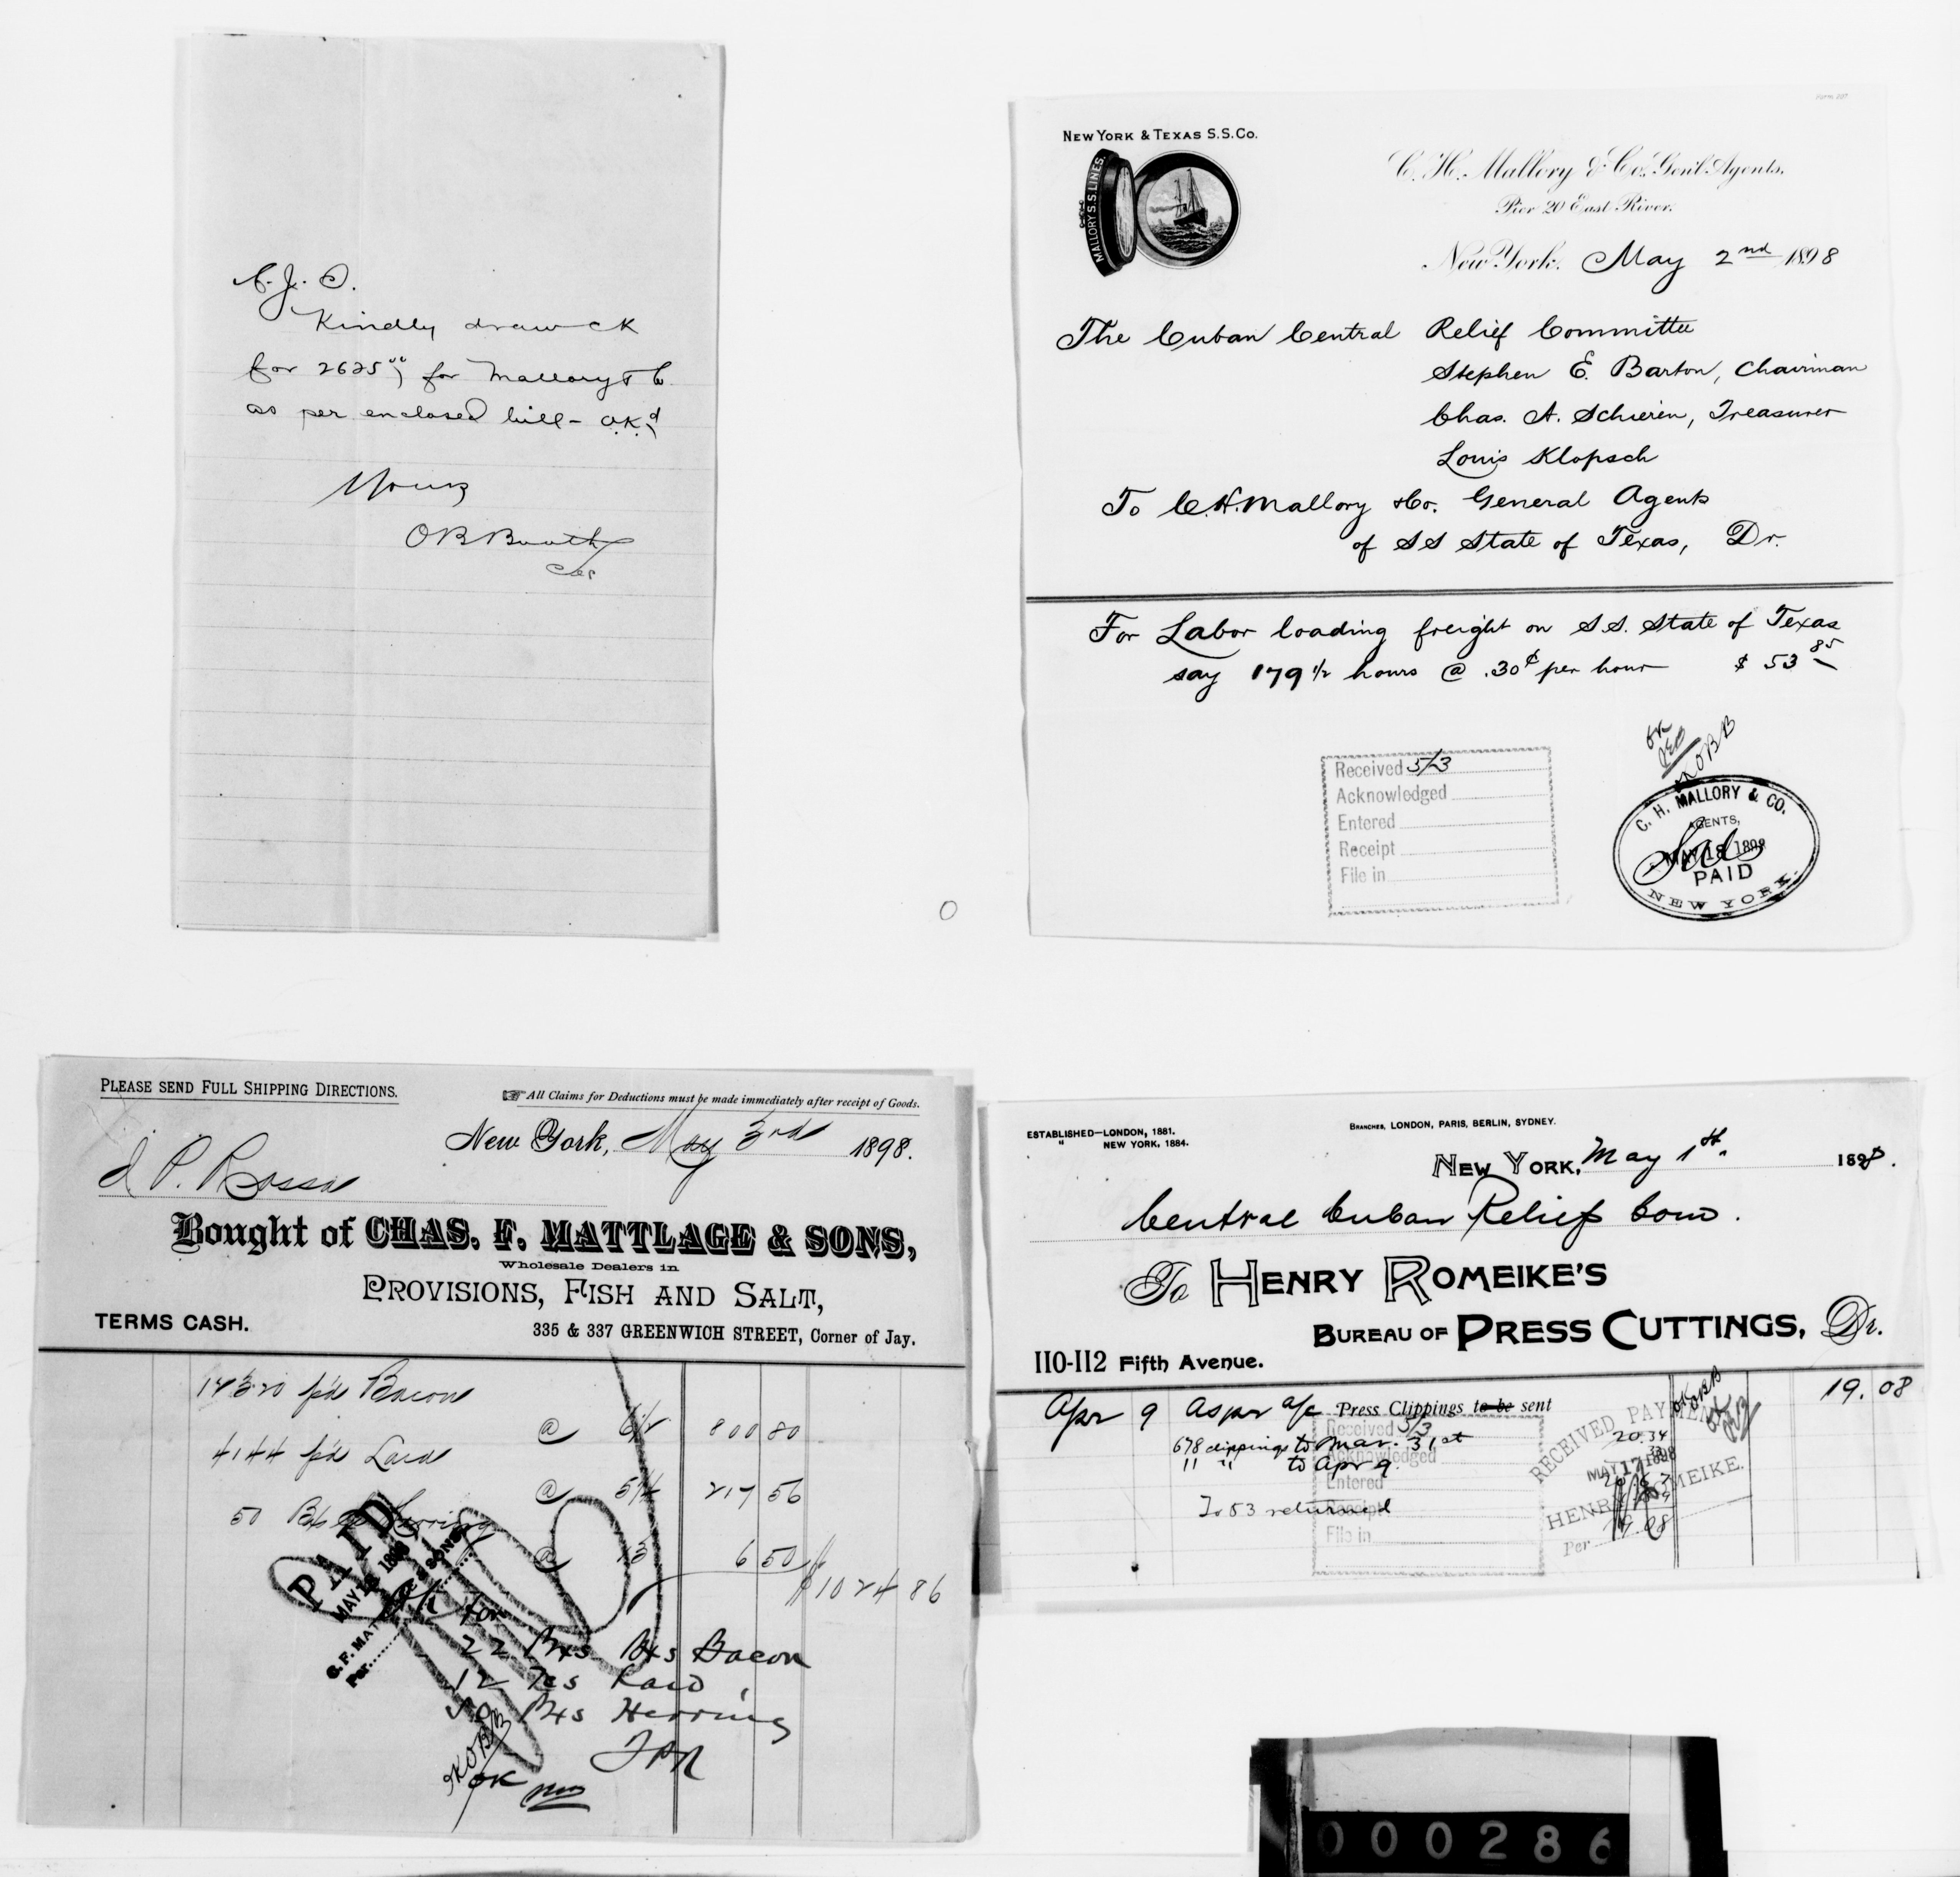 Kindly draw ck
for 2625 00/ for Mallory & Co.
as per enclosed bill - O.K.d
Yours
O B Booth
Form 207
NEW YORK & TEXAS S.S. CO.
MALLORY S.S. LINES.
C. H. Mallory & Co., Gen'l Agents,
Pier 20 East River.
New York. May 2nd 1898
The Cuban Central Relief Committee
Stephen E. Barton, Chairman
Chas. A. Schieren, Treasurer
Louis Klopsch
To C.H. Mallory & Co. General Agents
of SS State of Texas, Dr.
For Labor loading freight on S.S. State of Texas
say 179 1/2 hours @ .30¢ per hour $ 53 85
OK
OK OBB
Received 5/3
Acknowledged
Entered
Receipt
File in
C. H. MALLORY & CO.
AGENTS,
MAY 18 1898
PAID
NEW YORK.
PLEASE SEND FULL SHIPPING DIRECTIONS.
All Claims for Deductions must be made immediately after receipt of Goods.
New York, May 3rd 1898.
Bought of CHAS. F. MATTLAGE & SONS,
Wholesale Dealers in
PROVISIONS, FISH AND SALT,
TERMS CASH.
335 & 337 GREENWICH STREET, Corner of Jay.
Bacon
@ 800 80
4144 Lard
@ 5 1/4 217 56
50 Herring
@ 13 6 50
$1024 86
PAID
MAY 1898
C. F. MATTLAGE & SONS
Per
for
22 Bxs Bacon
12 Tcs Lard
50 Bxs Herring
OK OBB
OK
ESTABLISHED—LONDON, 1881.
" NEW YORK, 1884.
BRANCHES, LONDON, PARIS, BERLIN, SYDNEY.
NEW YORK, May 1st. 1898.
Central Cuban Relief Com.
To HENRY ROMEIKE'S
BUREAU OF PRESS CUTTINGS, Dr.
110-112 Fifth Avenue.
Apr 9 As per a/c Press Clippings to be sent 19.08
678 clippings to Mar. 31st
" " to Apr 9
53 returned
Received 5/3
Acknowledged
Entered
Receipt
File in
OK OBB
OK
RECEIVED PAYMENT
20.34
MAY 17 1898
HENRY ROMEIKE.
Per 19 08
000286